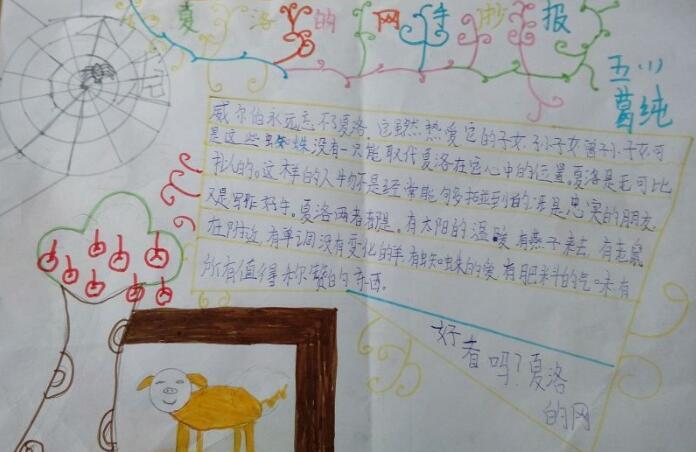 夏洛的网手抄报
五(1)
葛纯
威尔伯永远忘不了夏洛,它虽然热爱它的子女、孙子女、曾孙子女,可
是这些蜘蛛没有一只能取代夏洛在它心中的位置。夏洛是无可比
拟的。这样的人物不是经常能够碰到的:既是忠实的朋友,
又是写作好手。夏洛两者都是。
在附近,有单调没有变化的羊,有太阳的温暖,有燕子来去,有老鼠
有蜘蛛的爱,有肥料的气味,有
所有值得称赞的东西。
好看吗?夏洛
的网